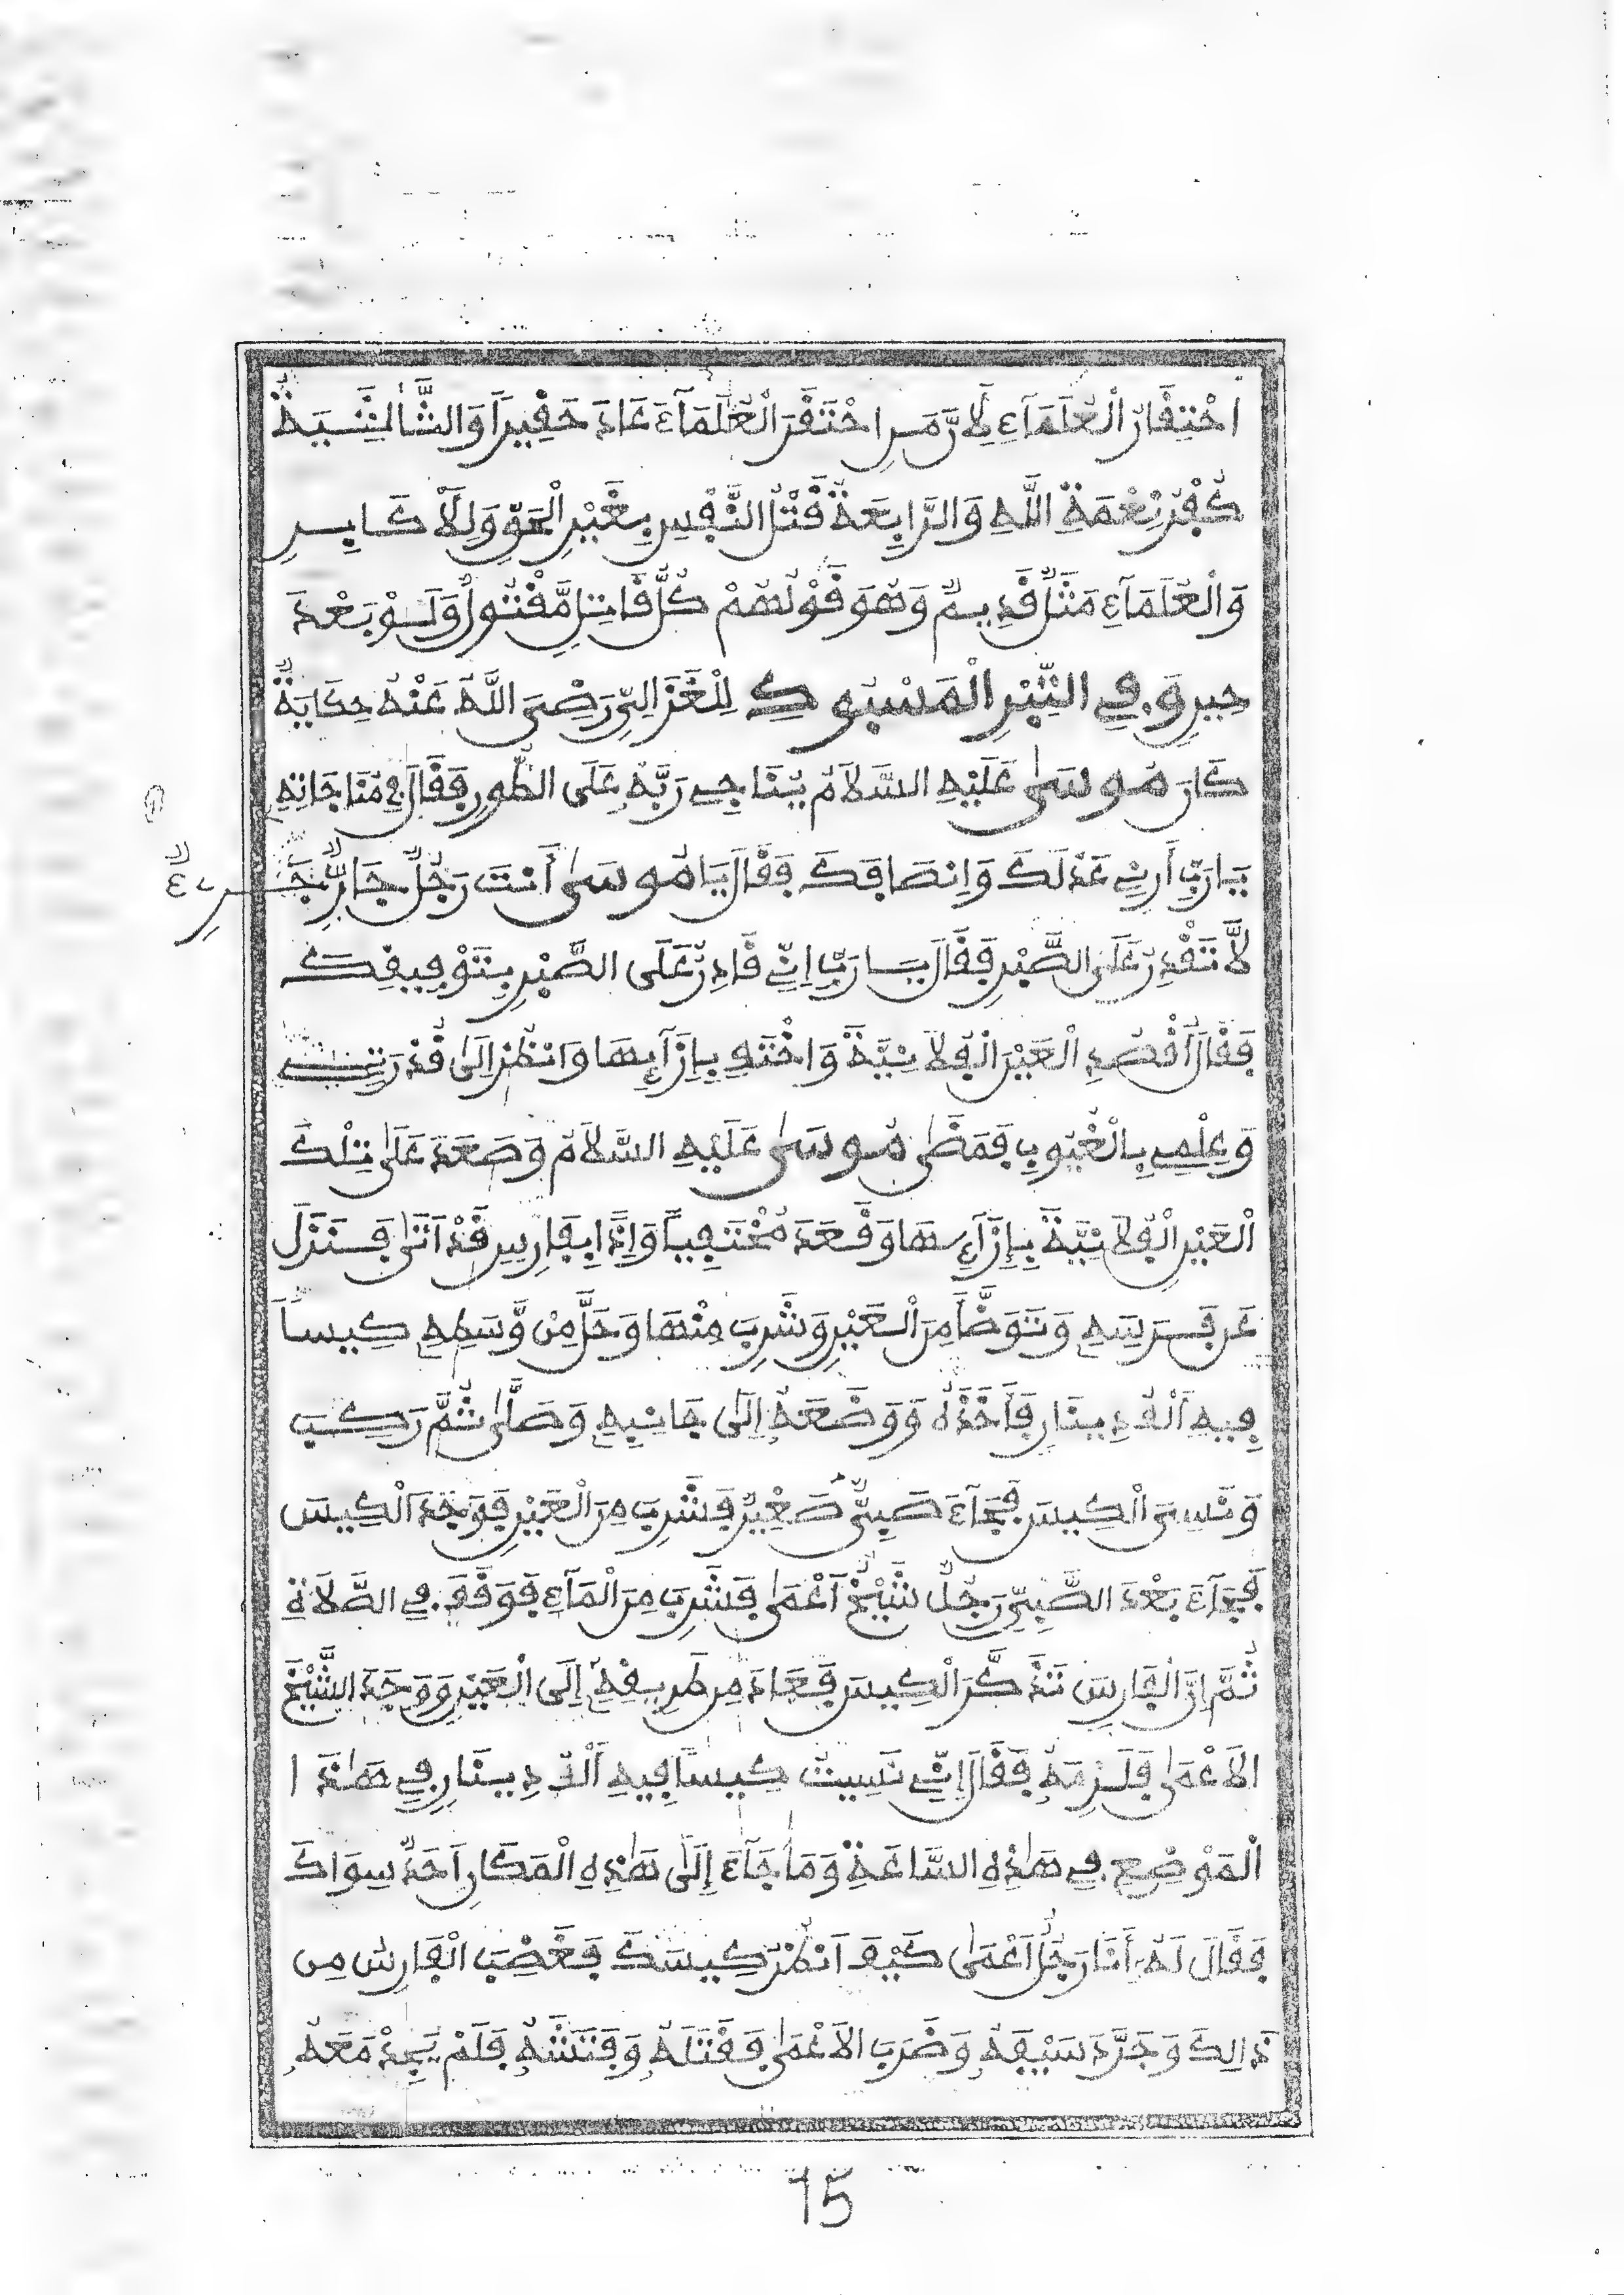 اِحْتِقَارُ الْعُلَمَآءِ لِأَنَّ مَنِ احْتَقَرَ الْعُلَمَآءَ عَادَ حَقِيراً وَالثَّالِثَةُ
كُفْرُ نِعْمَةِ اللَّهِ وَالرَّابِعَةُ قَتْلُ النَّفْسِ بِغَيْرِ الْحَقِّ وَلِلْأَكَابِرِ
وَالْعُلَمَآءِ مَثَلٌ قَدِيمٌ وَهُوَ قَوْلُهُمْ كُلُّ قَاتِلٍ مَّقْتُولٌ وَلَوْ بَعْدَ
حِينٍ وَفِي التِّبْرِ الْمَسْبُوكِ لِلْغَزَالِيِّ رَضِيَ اللَّهُ عَنْهُ حِكَايَةٌ
كَانَ مُوسَىٰ عَلَيْهِ السَّلَامُ يُنَاجِي رَبَّهُ عَلَى الطُّورِ فَقَالَ فِي مُنَاجَاتِهِ
يَا رَبِّ أَرِنِي عَدْلَكَ وَإِنْصَافَكَ فَقَالَ يَا مُوسَىٰ أَنْتَ رَجُلٌ جَابِرٌ جَرِيءٌ
لَّا تَقْدِرُ عَلَى الصَّبْرِ فَقَالَ يَا رَبِّ إِنِّي قَادِرٌ عَلَى الصَّبْرِ بِتَوْفِيقِكَ
فَقَالَ اقْصُدِ الْعَيْنَ الْفُلَانِيَّةَ وَاخْتَفِ بِإِزَآئِهَا وَانْظُرْ إِلَىٰ قُدْرَتِي
وَعِلْمِي بِالْغُيُوبِ فَمَضَىٰ مُوسَىٰ عَلَيْهِ السَّلَامُ وَصَعَدَ عَلَىٰ تِلْكَ
الْعَيْنِ الْفُلَانِيَّةِ بِإِزَآئِهَا وَقَعَدَ مُخْتَفِياً وَإِذَا بِفَارِسٍ قَدْ أَتَىٰ فَنَزَلَ
عَن فَرَسِهِ وَتَوَضَّأَ مِنَ الْعَيْنِ وَشَرِبَ مِنْهَا وَحَلَّ مِنْ وَّسَطِهِ كِيساً
فِيهِ أَلْفُ دِينَارٍ فَأَخَذَهُ وَوَضَعَهُ إِلَىٰ جَانِبِهِ وَصَلَّىٰ ثُمَّ رَكِبَ
وَنَسِيَ الْكِيسَ فَجَآءَ صَبِيٌّ صَغِيرٌ فَشَرِبَ مِنَ الْعَيْنِ فَوَجَدَ الْكِيسَ
فَجَآءَ بَعْدَ الصَّبِيِّ رَجُلٌ شَيْخٌ أَعْمَىٰ فَشَرِبَ مِنَ الْمَآءِ فَوَقَفَ فِي الصَّلَاةِ
ثُمَّ إِنَّ الْفَارِسَ تَذَكَّرَ الْكِيسَ فَعَادَ مِن طَرِيقِهِ إِلَى الْعَيْنِ وَوَجَدَ الشَّيْخَ
الْأَعْمَىٰ فَلَزِمَهُ فَقَالَ إِنِّي نَسِيتُ كِيساً فِيهِ أَلْفُ دِينَارٍ فِي هَٰذَا
الْمَوْضِعِ فِي هَٰذِهِ السَّاعَةِ وَمَا جَآءَ إِلَىٰ هَٰذِهِ الْمَكَانِ أَحَدٌ سِوَاكَ
فَقَالَ لَهُ أَنَا رَجُلٌ أَعْمَىٰ كَيْفَ أَنْظُرُ كِيسَكَ فَغَضِبَ الْفَارِسُ مِن
ذَالِكَ وَجَرَّدَ سَيْفَهُ وَضَرَبَ الْأَعْمَىٰ فَقَتَلَهُ وَفَتَشَهُ فَلَمْ يَجِدْ مَعَهُ
15